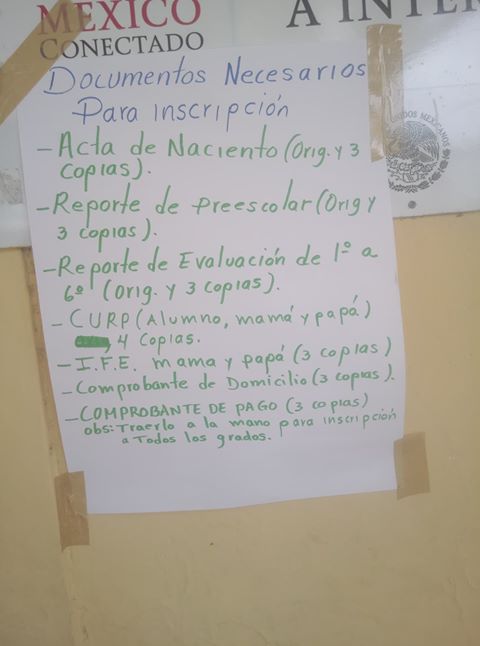 MÉXICO
CONECTADO
A INTER
UNIDOS MEXICANOS
Documentos Necesarios
Para inscripción
- Acta de Naciento (Orig. y 3
copias).
- Reporte de Preescolar (Orig y
3 copias).
- Reporte de Evaluación de 1º a
6º (Orig. y 3 copias).
- CURP (Alumno, mamá y papá)
, 4 copias.
- I.F.E. mama y papá (3 copias)
- Comprobante de Domicilio (3 copias).
- COMPROBANTE DE PAGO (3 copias)
obs: Traerlo a la mano para inscripción
a Todos los grados.